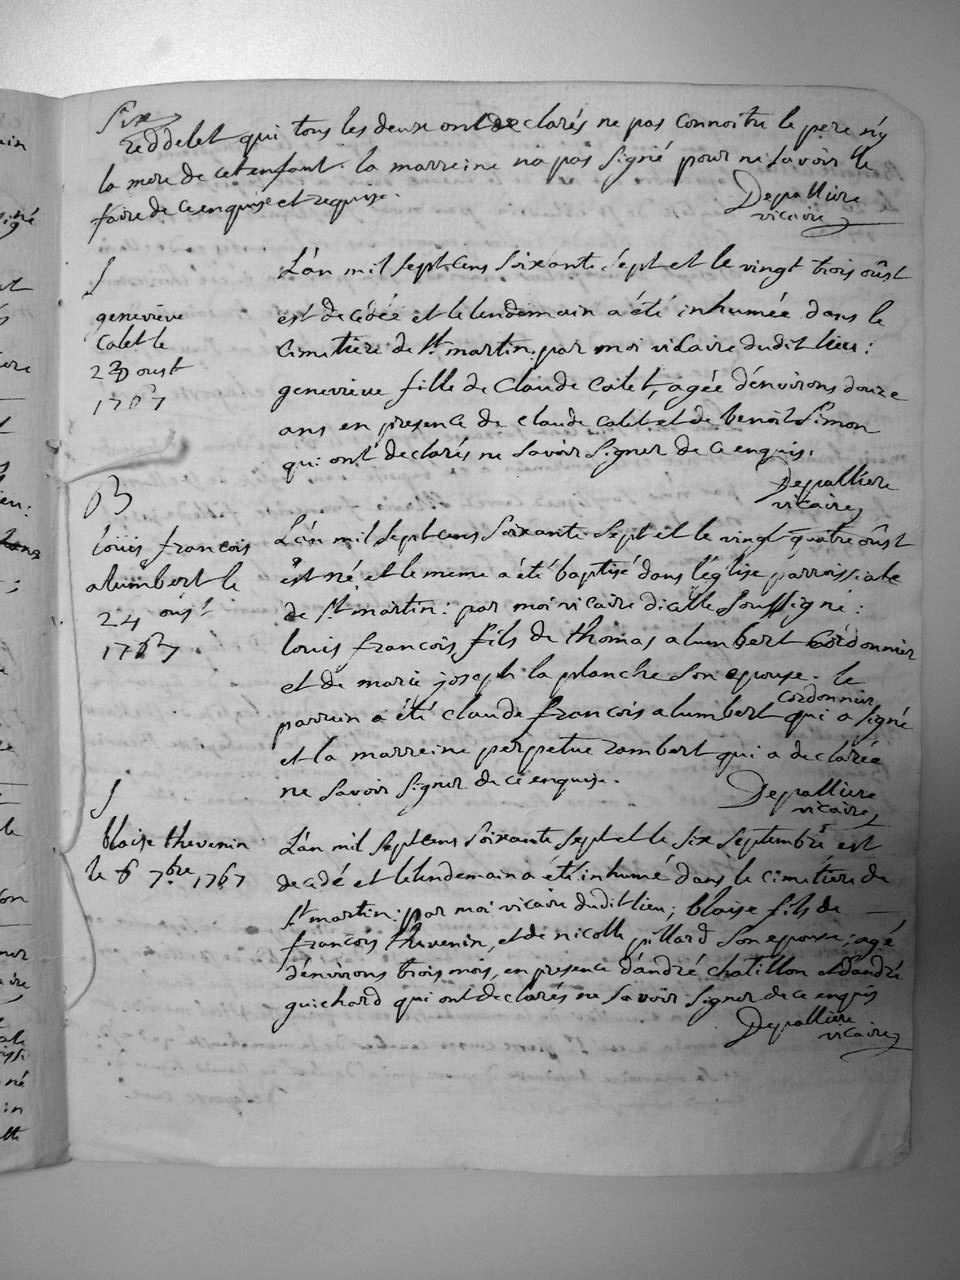 Six
reddelet qui tous les deux ont declarés ne pas connoitre le pere n'y
la mere de cet enfant. la marreine na pas signé pour ne savoir le
faire de ce enquise et requise.
Depalliere
vicaire
S
genevieve
Calet le
23 oust
1767
L'an mil sept cens soixante sept et le vingt trois oûst
est decédée et le lendemain a été inhumée dans le
Cimitiére de St martin par moi vicaire dudit lieu:
genevieve fille de Claude Calet, agée d'environs douze
ans en presence de claude calet et de benoit Simon
qui ont declarés ne savoir signer de ce enquis.
Depalliere
vicaire
B
loüis francois
alumbert le
24 oust
1767
L'an mil sept cens soixante sept et le vingt quatre oûst
est né et le meme a été baptisé dans l'église parroissiale
de St martin: par moi vicaire dicelle soussigné:
louis francois fils de thomas alumbert cordonnier
et de marie joseph la planche son epouse. le
parrein a été claude francois alumbert cordonnier qui a signé
et la marreine perpetue rambert qui a declarée
ne savoir signer de ce enquise.
Depalliere
vicaire
S
blaise thevenin
le 6 7.bre 1767
L'an mil sept cens soixante sept et le six septembre est
decedé et le lendemain a été inhumé dans le cimitiére de
St martin: par moi vicaire dudit lieu; blaise fils de
francois thevenin, et de nicolle pillard son epouse; agé
d'environs trois mois, en presence d'andré chatillon et d'andré
guichard qui ont declarés ne savoir signer de ce enquis
Depalliere
vicaire